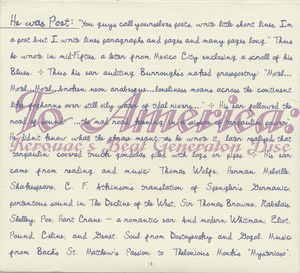 He was Poet: "You guys call yourselves poets, write little short lines, I'm
a poet but I write lines paragraphs and pages and many pages long." Thus
he wrote in mid-Fifties, a letter from Mexico City enclosing a scroll of his
Blues. + Thus his ear auditing Burroughs naked prosepoetry: "Motel...
Motel...Motel...broken neon arabesque...loneliness moans across the continent
like foghorns over still oily water of tidal rivers..." + His ear followed the
road of sound
He didn't know what the phrase meant as he wrote it, later realized
covered trucks gondolas piled with logs or pipe. + His ear
came from reading and music: Thomas Wolfe, Herman Melville,
Shakespeare, C. F. Atkinson's translation of Spengler's Germanic
portentous sound in The Decline of the West, Sir Thomas Browne, Rabelais,
Shelley, Poe, Hart Crane - a romantic ear. And modern, Whitman, Eliot,
Pound, Celine, and Genet. Soul from Dostoyevsky and Gogol. Music
from Bach's St. Matthew's Passion to Thelonious Monk's "Mysterioso"
To America:
Kerouac's Beat Generation Muse
(1)